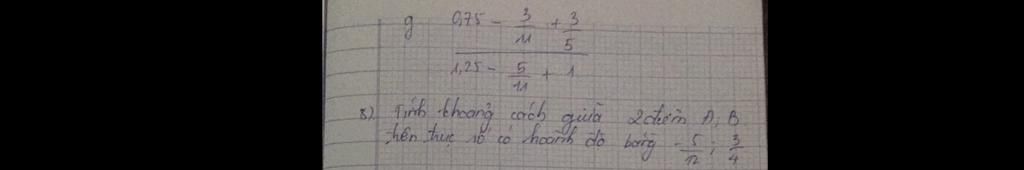 g 0,75 - 3/11 + 3/5
1,25 - 5/11 + 1
8) Tính khoảng cách giữa 2 điểm A, B
trên trục số có hoành độ bằng -5/12 ; 3/4